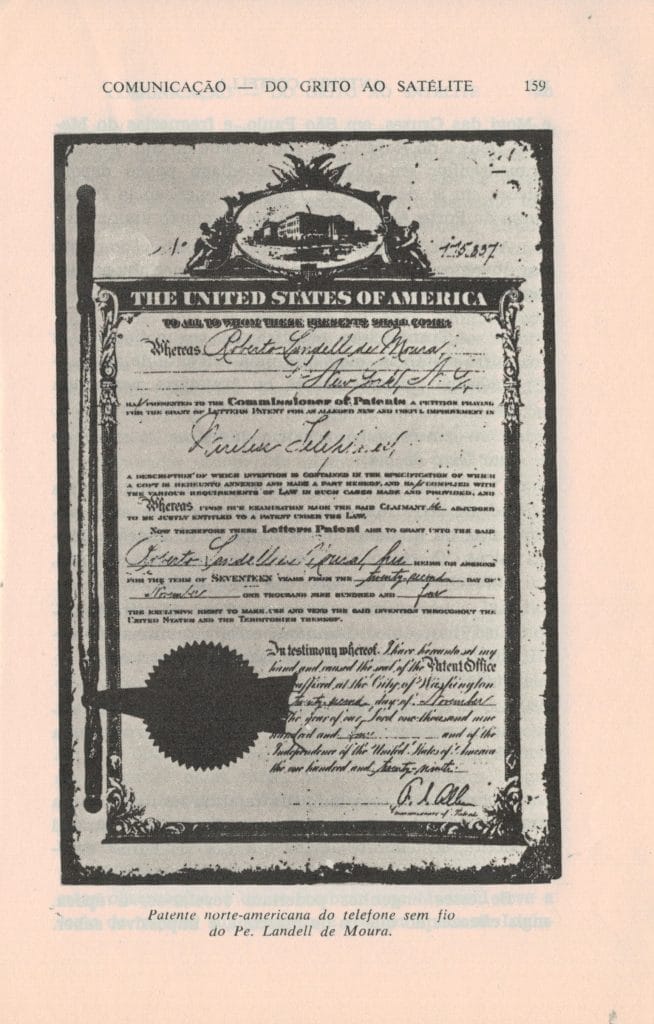 COMUNICAÇÃO — DO GRITO AO SATÉLITE 159
No. 775.837
THE UNITED STATES OF AMERICA
TO ALL TO WHOM THESE PRESENTS SHALL COME:
Whereas Roberto Landell de Moura,
New York, N. Y.,
HAS PRESENTED TO THE Commissioner of Patents A PETITION PRAYING
FOR THE GRANT OF LETTERS PATENT FOR AN ALLEGED NEW AND USEFUL IMPROVEMENT IN
Wireless Telephones,
A DESCRIPTION OF WHICH INVENTION IS CONTAINED IN THE SPECIFICATION OF WHICH
A COPY IS HEREUNTO ANNEXED AND MADE A PART HEREOF, AND HAS COMPLIED WITH
THE VARIOUS REQUIREMENTS OF LAW IN SUCH CASES MADE AND PROVIDED, AND
Whereas UPON DUE EXAMINATION MADE THE SAID CLAIMANT is ADJUDGED
TO BE JUSTLY ENTITLED TO A PATENT UNDER THE LAW.
NOW THEREFORE THESE Letters Patent ARE TO GRANT UNTO THE SAID
Roberto Landell de Moura, his HEIRS OR ASSIGNS
FOR THE TERM OF SEVENTEEN YEARS FROM THE twenty-second DAY OF
November ONE THOUSAND NINE HUNDRED AND four
THE EXCLUSIVE RIGHT TO MAKE, USE AND VEND THE SAID INVENTION THROUGHOUT THE
UNITED STATES AND THE TERRITORIES THEREOF.
In testimony whereof, I have hereunto set my
hand and caused the seal of the Patent Office
affixed at the City of Washington
twenty-second day of November
the year of our Lord one thousand nine
hundred and four and of the
Independence of the United States of America
the one hundred and twenty-ninth.
Commissioner of Patents
Patente norte-americana do telefone sem fio
do Pe. Landell de Moura.